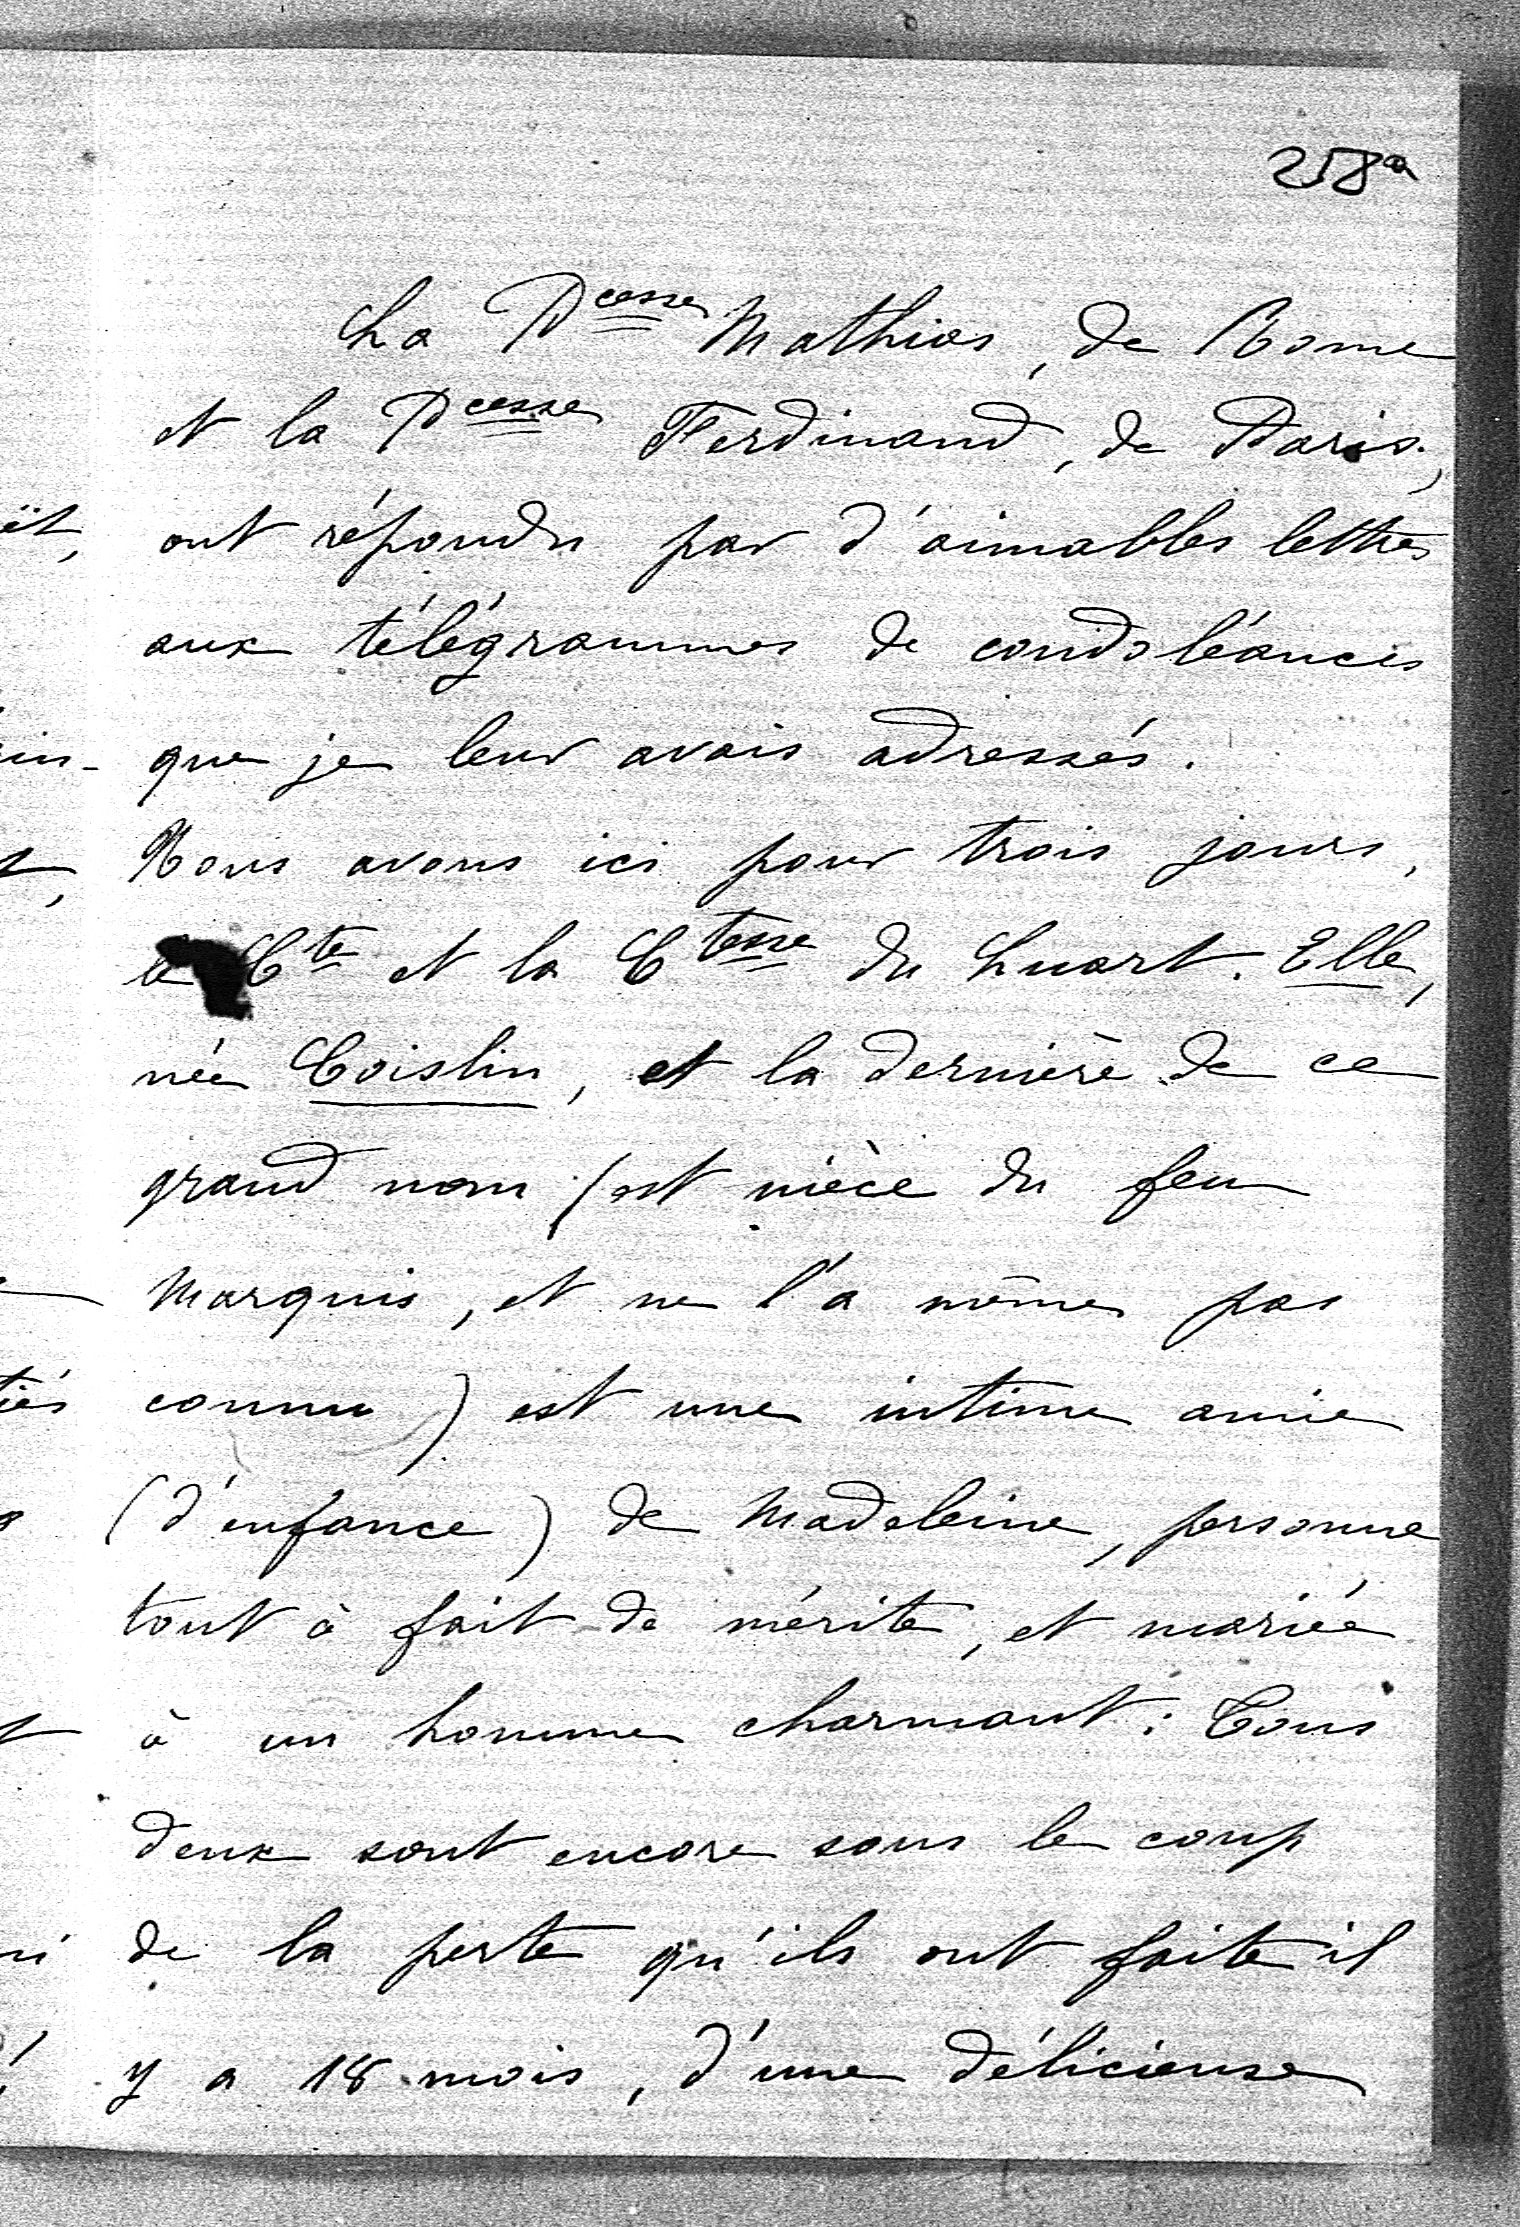 258a
La Pcesse Mathias, de Rome
et la Pcesse Ferdinand, de Paris,
ont répondu par d'aimables lettres
aux télégrammes de condoléances
que je leur avais adressés.
Nous avons ici pour trois jours,
le Cte et la Ctesse du Luart. Elle,
née Coislin, et la dernière de ce
grand nom (est nièce du feu
Marquis, et ne l'a même pas
connu) est une intime amie
(d'enfance) de Madeleine, personne
tout à fait de mérite, et mariée
à un homme charmant: Tous
deux sont encore sous le coup
de la perte qu'ils ont faite il
y a 18 mois, d'une délicieuse